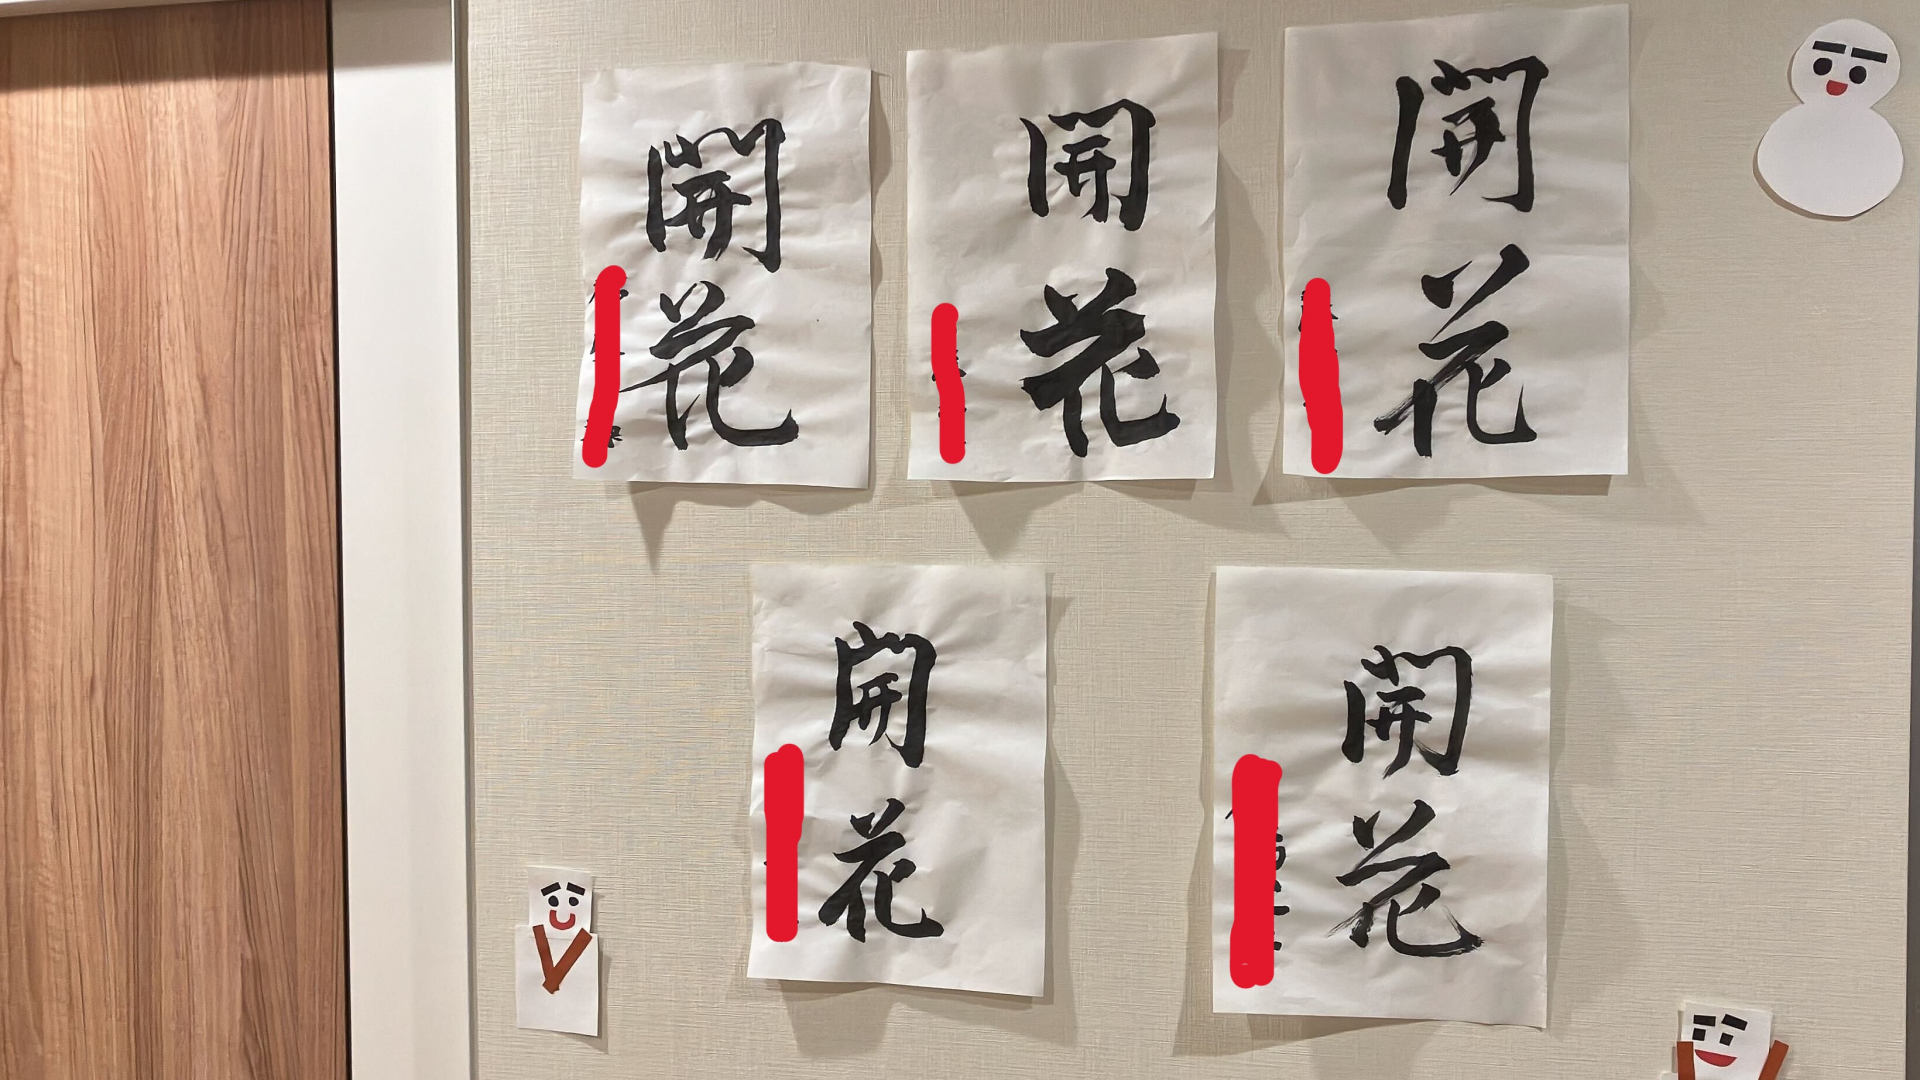 開花
開花
開花
開花
開花